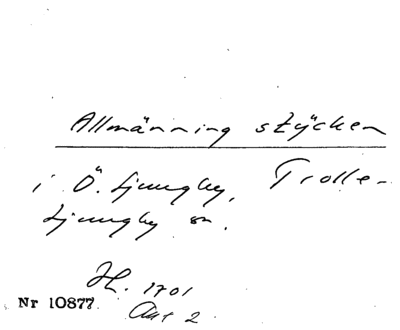 Allmänning stycken
i Ö. Ljungby, Trolle-
Ljungby sn.
H. 1701
Nr 10877
Akt 2.